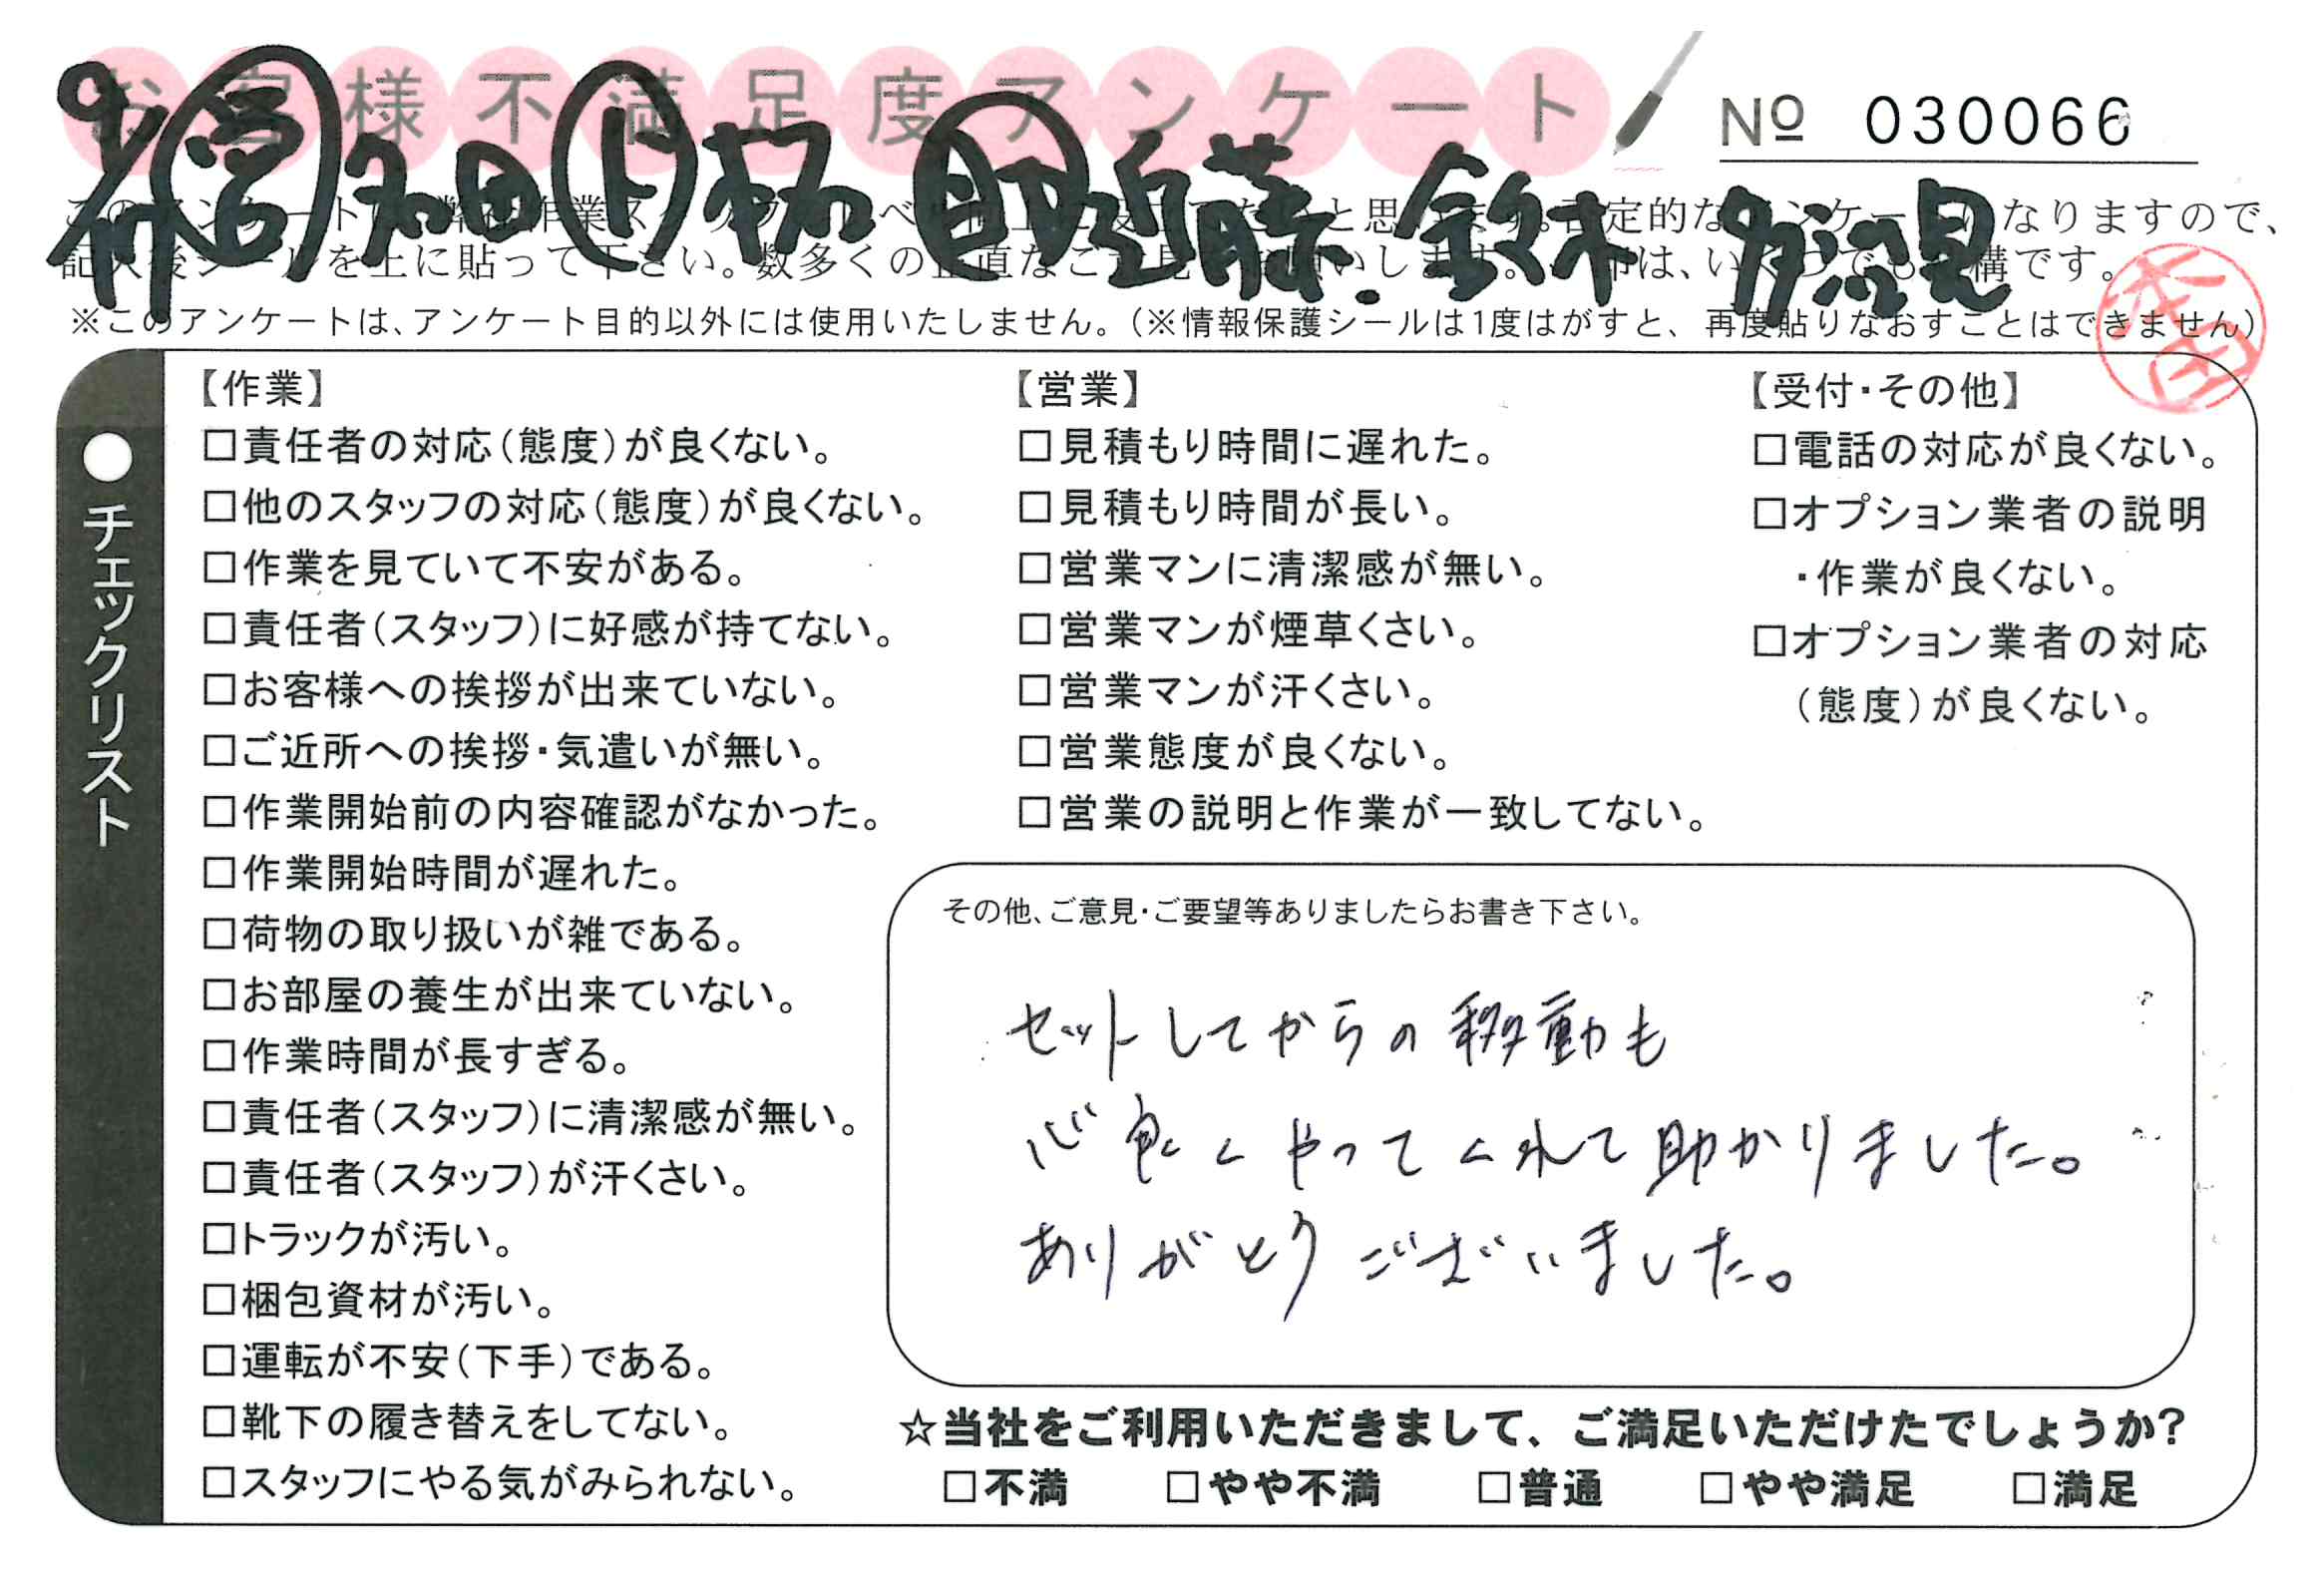 お客様不満足度アンケート
№ 030066
9/ 営 和田 ト 柘 助 近藤.鈴木 多治見
記入後シールを上に貼って下さい。数多くの正直なご
※このアンケートは、アンケート目的以外には使用いたしません。(※情報保護シールは1度はがすと、再度貼りなおすことはできません)
●チェックリスト
【作業】
□責任者の対応(態度)が良くない。
□他のスタッフの対応(態度)が良くない。
□作業を見ていて不安がある。
□責任者(スタッフ)に好感が持てない。
□お客様への挨拶が出来ていない。
□ご近所への挨拶・気遣いが無い。
□作業開始前の内容確認がなかった。
□作業開始時間が遅れた。
□荷物の取り扱いが雑である。
□お部屋の養生が出来ていない。
□作業時間が長すぎる。
□責任者(スタッフ)に清潔感が無い。
□責任者(スタッフ)が汗くさい。
□トラックが汚い。
□梱包資材が汚い。
□運転が不安(下手)である。
□靴下の履き替えをしてない。
□スタッフにやる気がみられない。
【営業】
□見積もり時間に遅れた。
□見積もり時間が長い。
□営業マンに清潔感が無い。
□営業マンが煙草くさい。
□営業マンが汗くさい。
□営業態度が良くない。
□営業の説明と作業が一致してない。
【受付・その他】
□電話の対応が良くない。
□オプション業者の説明
・作業が良くない。
□オプション業者の対応
(態度)が良くない。
その他、ご意見・ご要望等ありましたらお書き下さい。
セットしてからの移動も
心良くやってくれて助かりました。
ありがとうございました。
☆当社をご利用いただきまして、ご満足いただけたでしょうか?
□不満 □やや不満 □普通 □やや満足 □満足